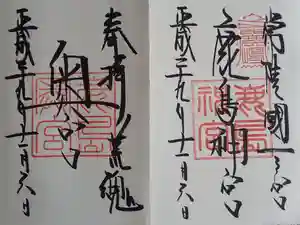 常陸国一之宮
鹿島神宮
平成二十九年十一月六日
奉拝 荒魂
奥宮
平成二十九年十一月六日